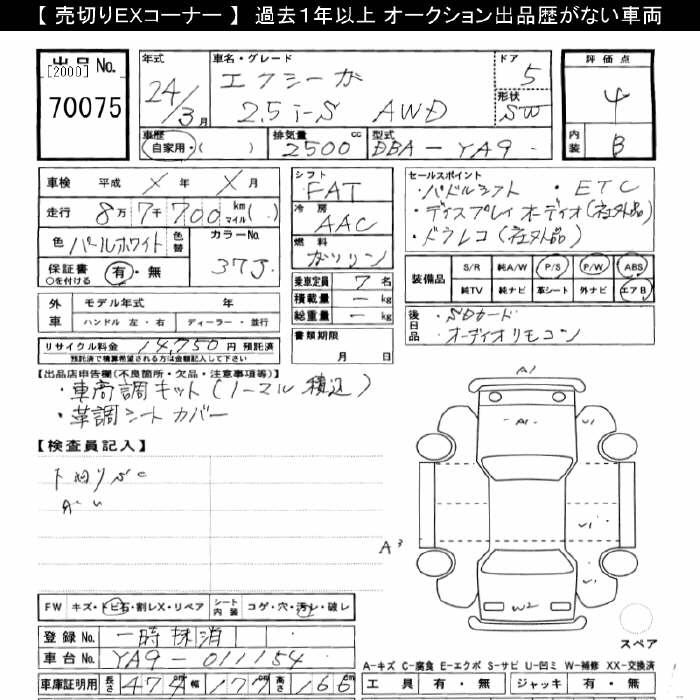 【 売切りEXコーナー 】 過去1年以上 オークション出品歴がない車両
出品 No.
[2000]
70075
年式
24/3月
車名・グレード
エクシーガ
2.5 i-S AWD
ドア
5
形状
SW
評価点
4
内装
B
車歴
自家用・( )
排気量 cc
2500
型式
DBA-YA9
車検 平成 X 年 X 月
走行 8万7千700 km マイル( )
色 パールホワイト 色替
カラーNo.
37J
保証書 有・無
○を付ける
外車 モデル年式 年
ハンドル 左・右 ディーラー・並行
リサイクル料金 14,750 円 預託済
預託済で積算希望される方は金額記入して下さい
シフト
FAT
冷房
AAC
燃料
ガソリン
乗車定員 7 名
積載量 - kg
総重量 - kg
書類期限
月 日
セールスポイント
・パドルシフト ・ETC
・ディスプレイオーディオ(社外品)
・ドラレコ(社外品)
装備品 S/R 純A/W P/S P/W ABS
純TV 純ナビ 革シート 外ナビ エアB
後日品 ・SDカード
・オーディオリモコン
【出品店申告欄(不良箇所・欠品・注意事項等)】
・車高調キット(ノーマル積込)
・革調シートカバー
【検査員記入】
A1
A1
U1
U1
A3
W2
U1
スペア
FW キズ・トビ石・割レX・リペア シート内装 コゲ・穴・汚レ・破レ
登録 No. 一時抹消
車台 No. YA9-011154
車庫証明用 長さ 474 幅 177 高さ 166
A-キズ C-腐食 E-エクボ S-サビ U-凹ミ W-補修 XX-交換済
工具 有・無 ジャッキ 有・無